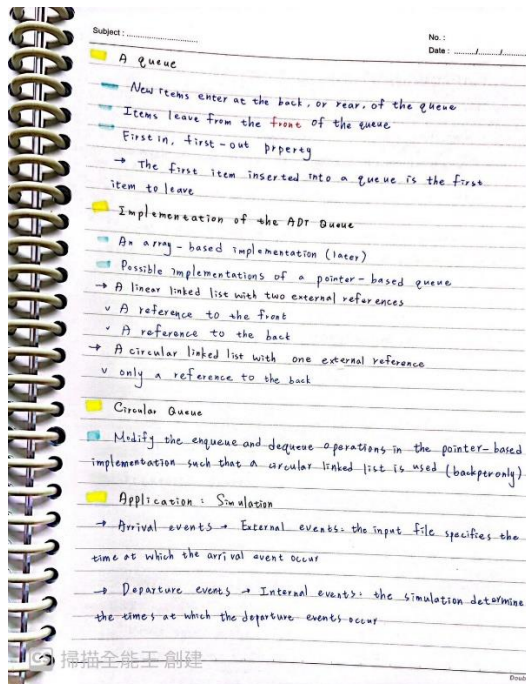 Subject :
No. :
Date : / /
A queue
New items enter at the back, or rear, of the queue
Items leave from the front of the queue
First in, first-out prperty
→ The first item inserted into a queue is the first
item to leave
Implementation of the ADT Queue
An array-based implementation (later)
Possible implementations of a pointer-based queue
→ A linear linked list with two external references
v A reference to the front
v A reference to the back
→ A circular linked list with one external reference
v only a reference to the back
Circular Queue
Modify the enqueue and dequeue operations in the pointer-based
implementation such that a circular linked list is used (backptronly)
Application : Simulation
→ Arrival events → External events: the input file specifies the
time at which the arrival event occur
→ Departure events → Internal events: the simulation determine
the times at which the departure events occur
CS 掃描全能王 創建